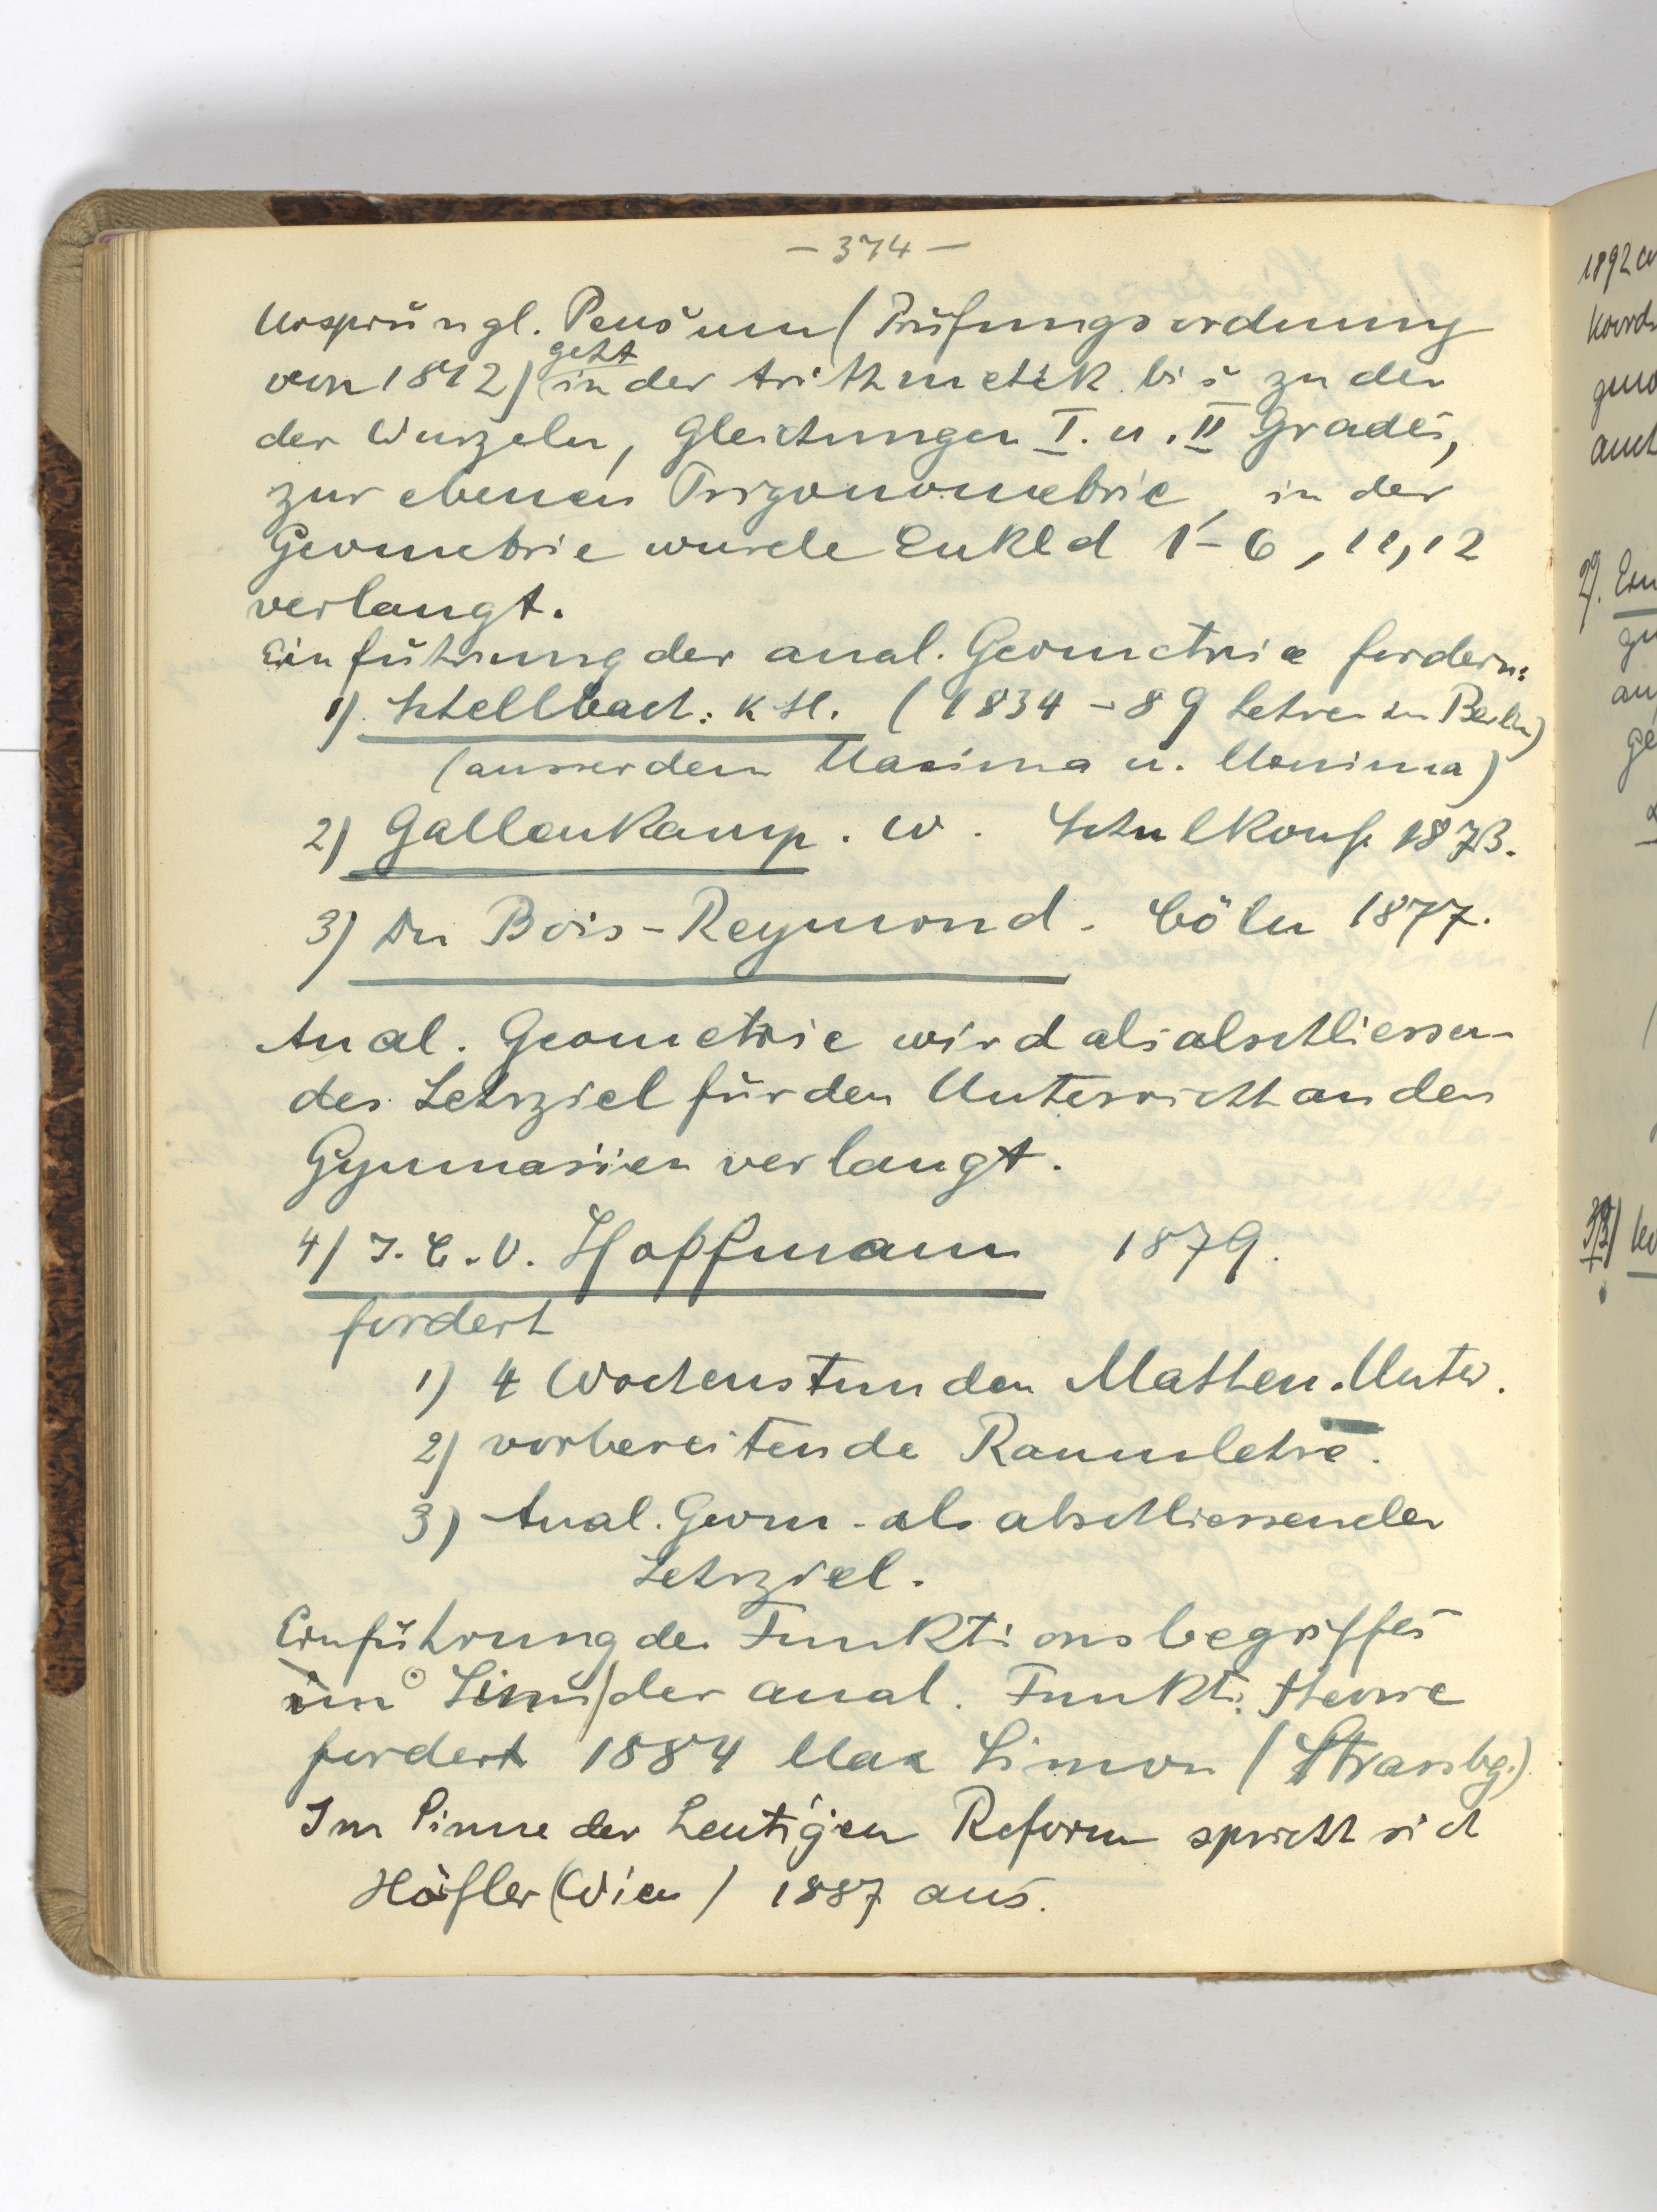 – 374 –
Ursprüngl. Pensum (Prüfungsordnung
geht
von 1812) in der Arithmetik bis zu den
der Wurzeln, Gleichungen I. u. II Grades,
zur ebenen Trigonometrie, in der
Geometrie wurde Eukld 1–6, 11, 12
verlangt.
Einführung der anal. Geometrie fordern:
1) Schellbach: K H. (1834–89 Lehrer in Berlin)
(ausserdem Maxima u. Minima)
2) Gallenkamp. W. Schulkonf. 1873.
3) Du Bois-Reymond. Cöln 1877.
Anal. Geometrie wird als abschliessen-
des Lehrziel für den Unterricht an den
Gymnasien verlangt.
4) J. C. V. Hoffmann 1879.
fordert
1) 4 Wochenstunden Mathem. Unter.
2) vorbereitende Raumlehre.
3) Anal. Geom. als abschliessendes
Lehrziel.
Einführung des Funktionsbegriffes
im Sinn der anal. Funkt. theorie
fordert 1884 Max Simon (Strassbg.)
Im Sinne der heutigen Reform spricht sich
Höfler (Wien) 1887 aus.
1892
Koord
auch
2).